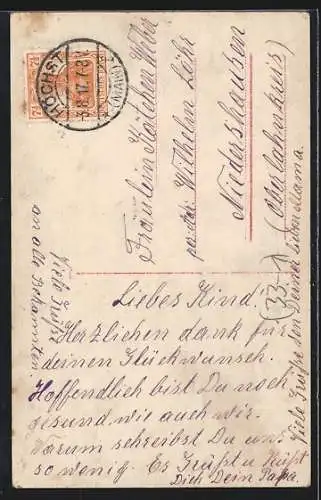 HÖCHST
(MAIN)
3.8.17. 7-8V
7½
Fräulein Kätchen Weber
per Adr: Wilhelm Löhr
Niedershausen
(Oberlahnkreis)
Liebes Kind!
Herzlichen dank für
deinen Glückwunsch.
Hoffendlich bist Du noch
gesund wie auch wir.
Warum schreibst Du uns
so wenig. Es Grüßt u Küßt
Dich Dein Papa.
Viele Grüße
an alle Bekannten.
Viele Grüße von Deiner lieben Mama.